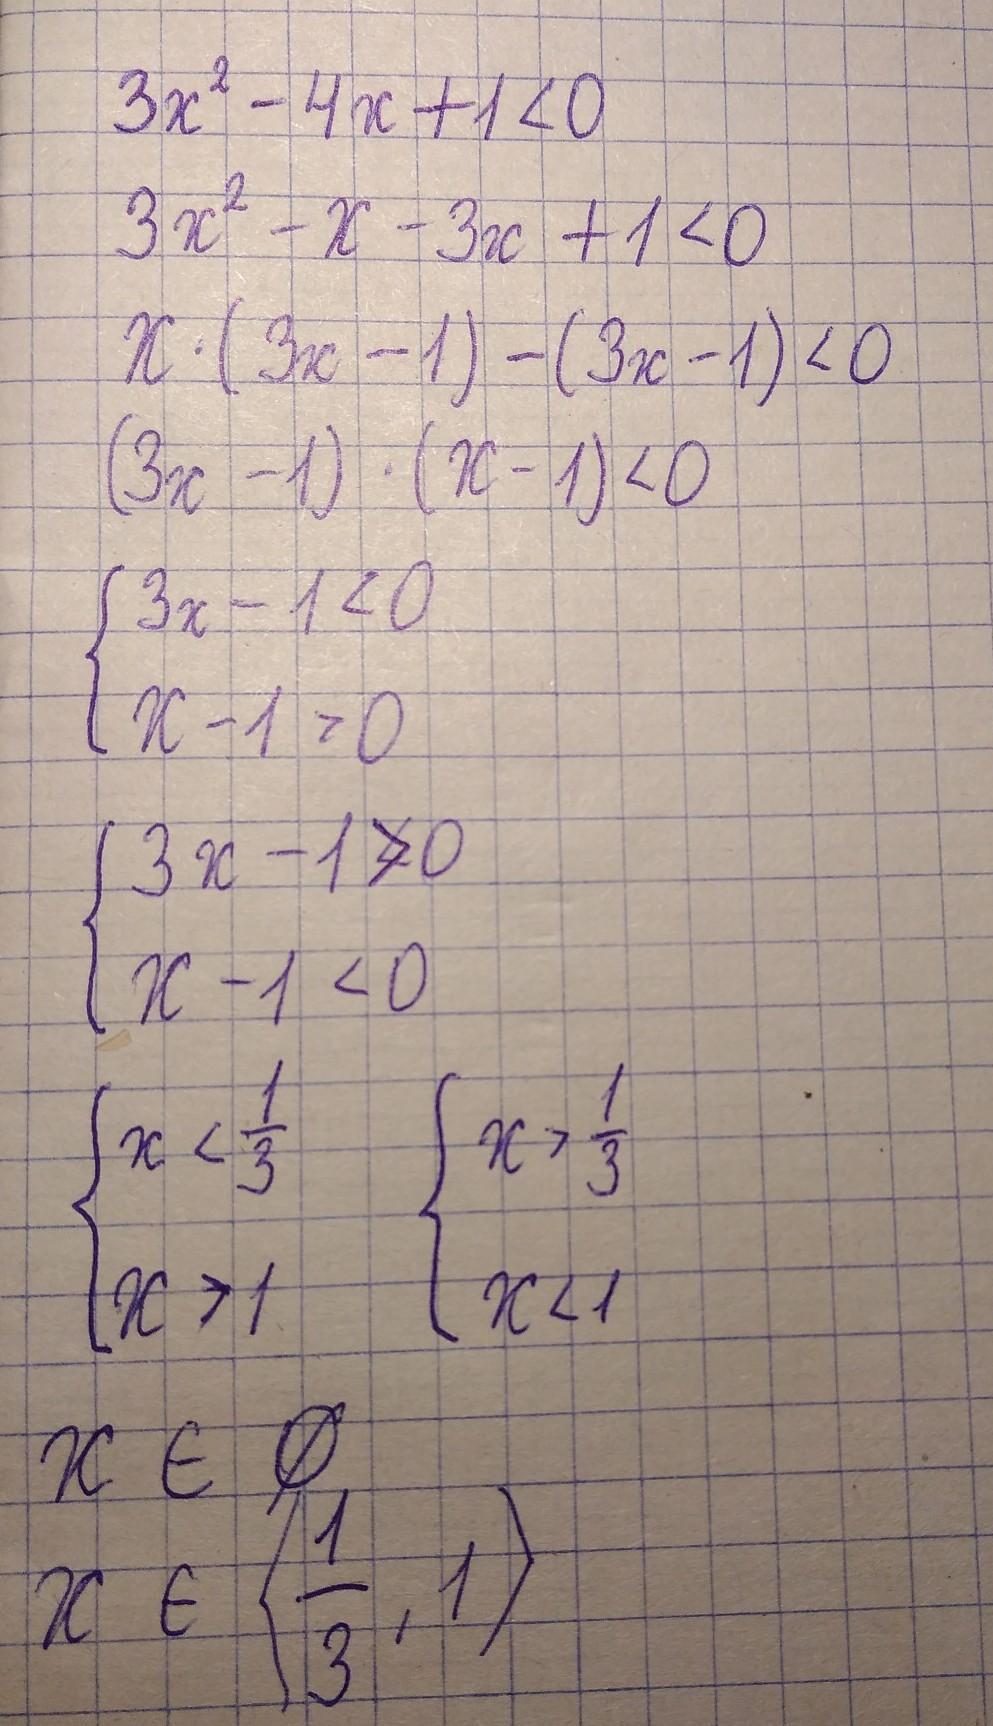 3x² - 4x + 1 < 0
3x² - x - 3x + 1 < 0
x · (3x - 1) - (3x - 1) < 0
(3x - 1) · (x - 1) < 0
{ 3x - 1 < 0
x - 1 > 0
{ 3x - 1 > 0
x - 1 < 0
{ x < 1/3 { x > 1/3
x > 1 x < 1
x ∈ Ø
x ∈ ⟨1/3, 1⟩